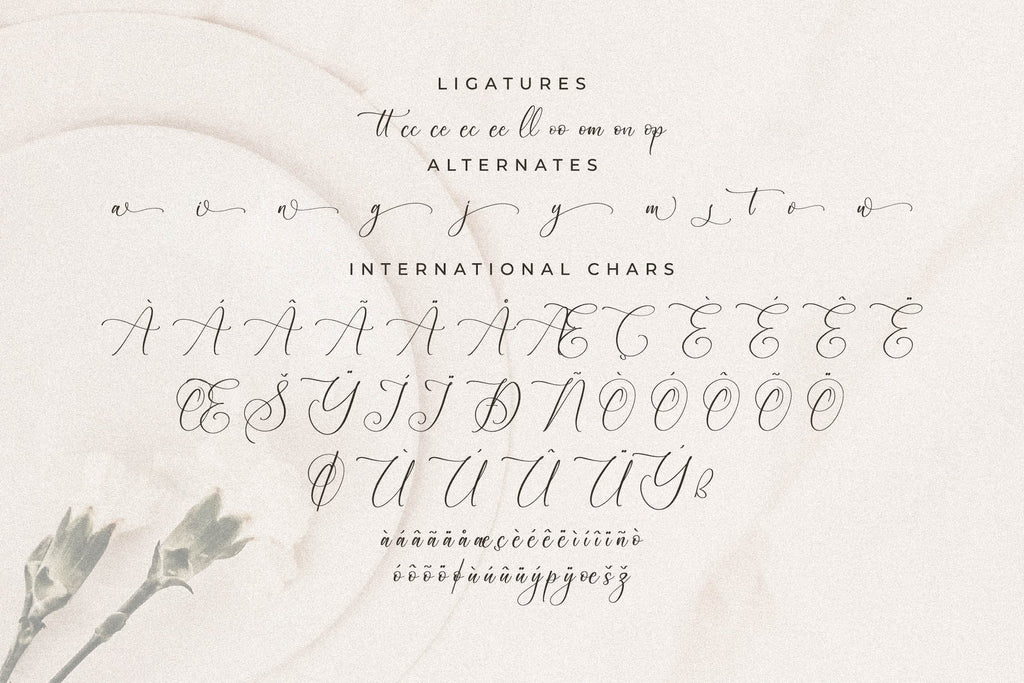 LIGATURES
tt cc ce ec ee ll oo om on op
ALTERNATES
a i n g j y m s t o w
INTERNATIONAL CHARS
À Á Â Ã Ä Å Æ Ç È É Ê Ë
Œ Š Ÿ Í Ï Ð Ñ Ò Ó Ô Õ Ö
Ø Ù Ú Û Ü Ý ß
à á â ã ä å æ ç è é ê ë ì í î ï ñ ò
ó ô õ ö ø ù ú û ü ý þ ÿ œ š ž